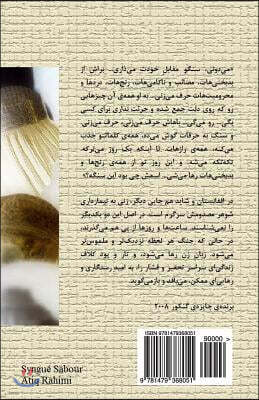 «می‌دونی، سنگو مقابل خودت می‌ذاری... براش از
بدبختی‌هات، مصائب و ناکامی‌هات، رنج‌ها، دردها و
محرومیت‌هات حرف می‌زنی... به او همه‌ی آن چیزهایی
رو که روی دلت جمع شده و جرئت نداری برای کسی
بگی... رو می‌گی... باهاش حرف می‌زنی، حرف می‌زنی
و سنگ به حرفات گوش می‌ده، همه‌ی کلماتتو جذب
می‌کنه، همه‌ی رازهات. تا اینکه یک روز می‌ترکه.
تکه‌تکه می‌شه. و این روز تو از همه‌ی رنج‌ها و
بدبختی‌هات رها می‌شی... اسمش چی بود این سنگه؟»
در افغانستان و شاید هم جایی دیگر، زنی به تیمارداری
شوهر مصدومش سرگرم است. در اصل این دو یکدیگر
را نمی‌شناسند. ساعت‌ها و روزها از پی هم می‌گذرند،
در حالی که جنگ هر لحظه نزدیک‌تر و ملموس‌تر
می‌شود. زبان زن رها می‌شود، و تار و پود کلاف
زندگی‌ای سراسر تحقیر و فشار را، به امید رستگاری و
رهایی‌ای ممکن، می‌بافد و بازمی‌گوید.
برنده‌ی جایزه‌ی گنکور ۲۰۰۸
Syngué Sabour
Atiq Rahimi
ISBN 9781479368051
90000 >
9 781479 368051